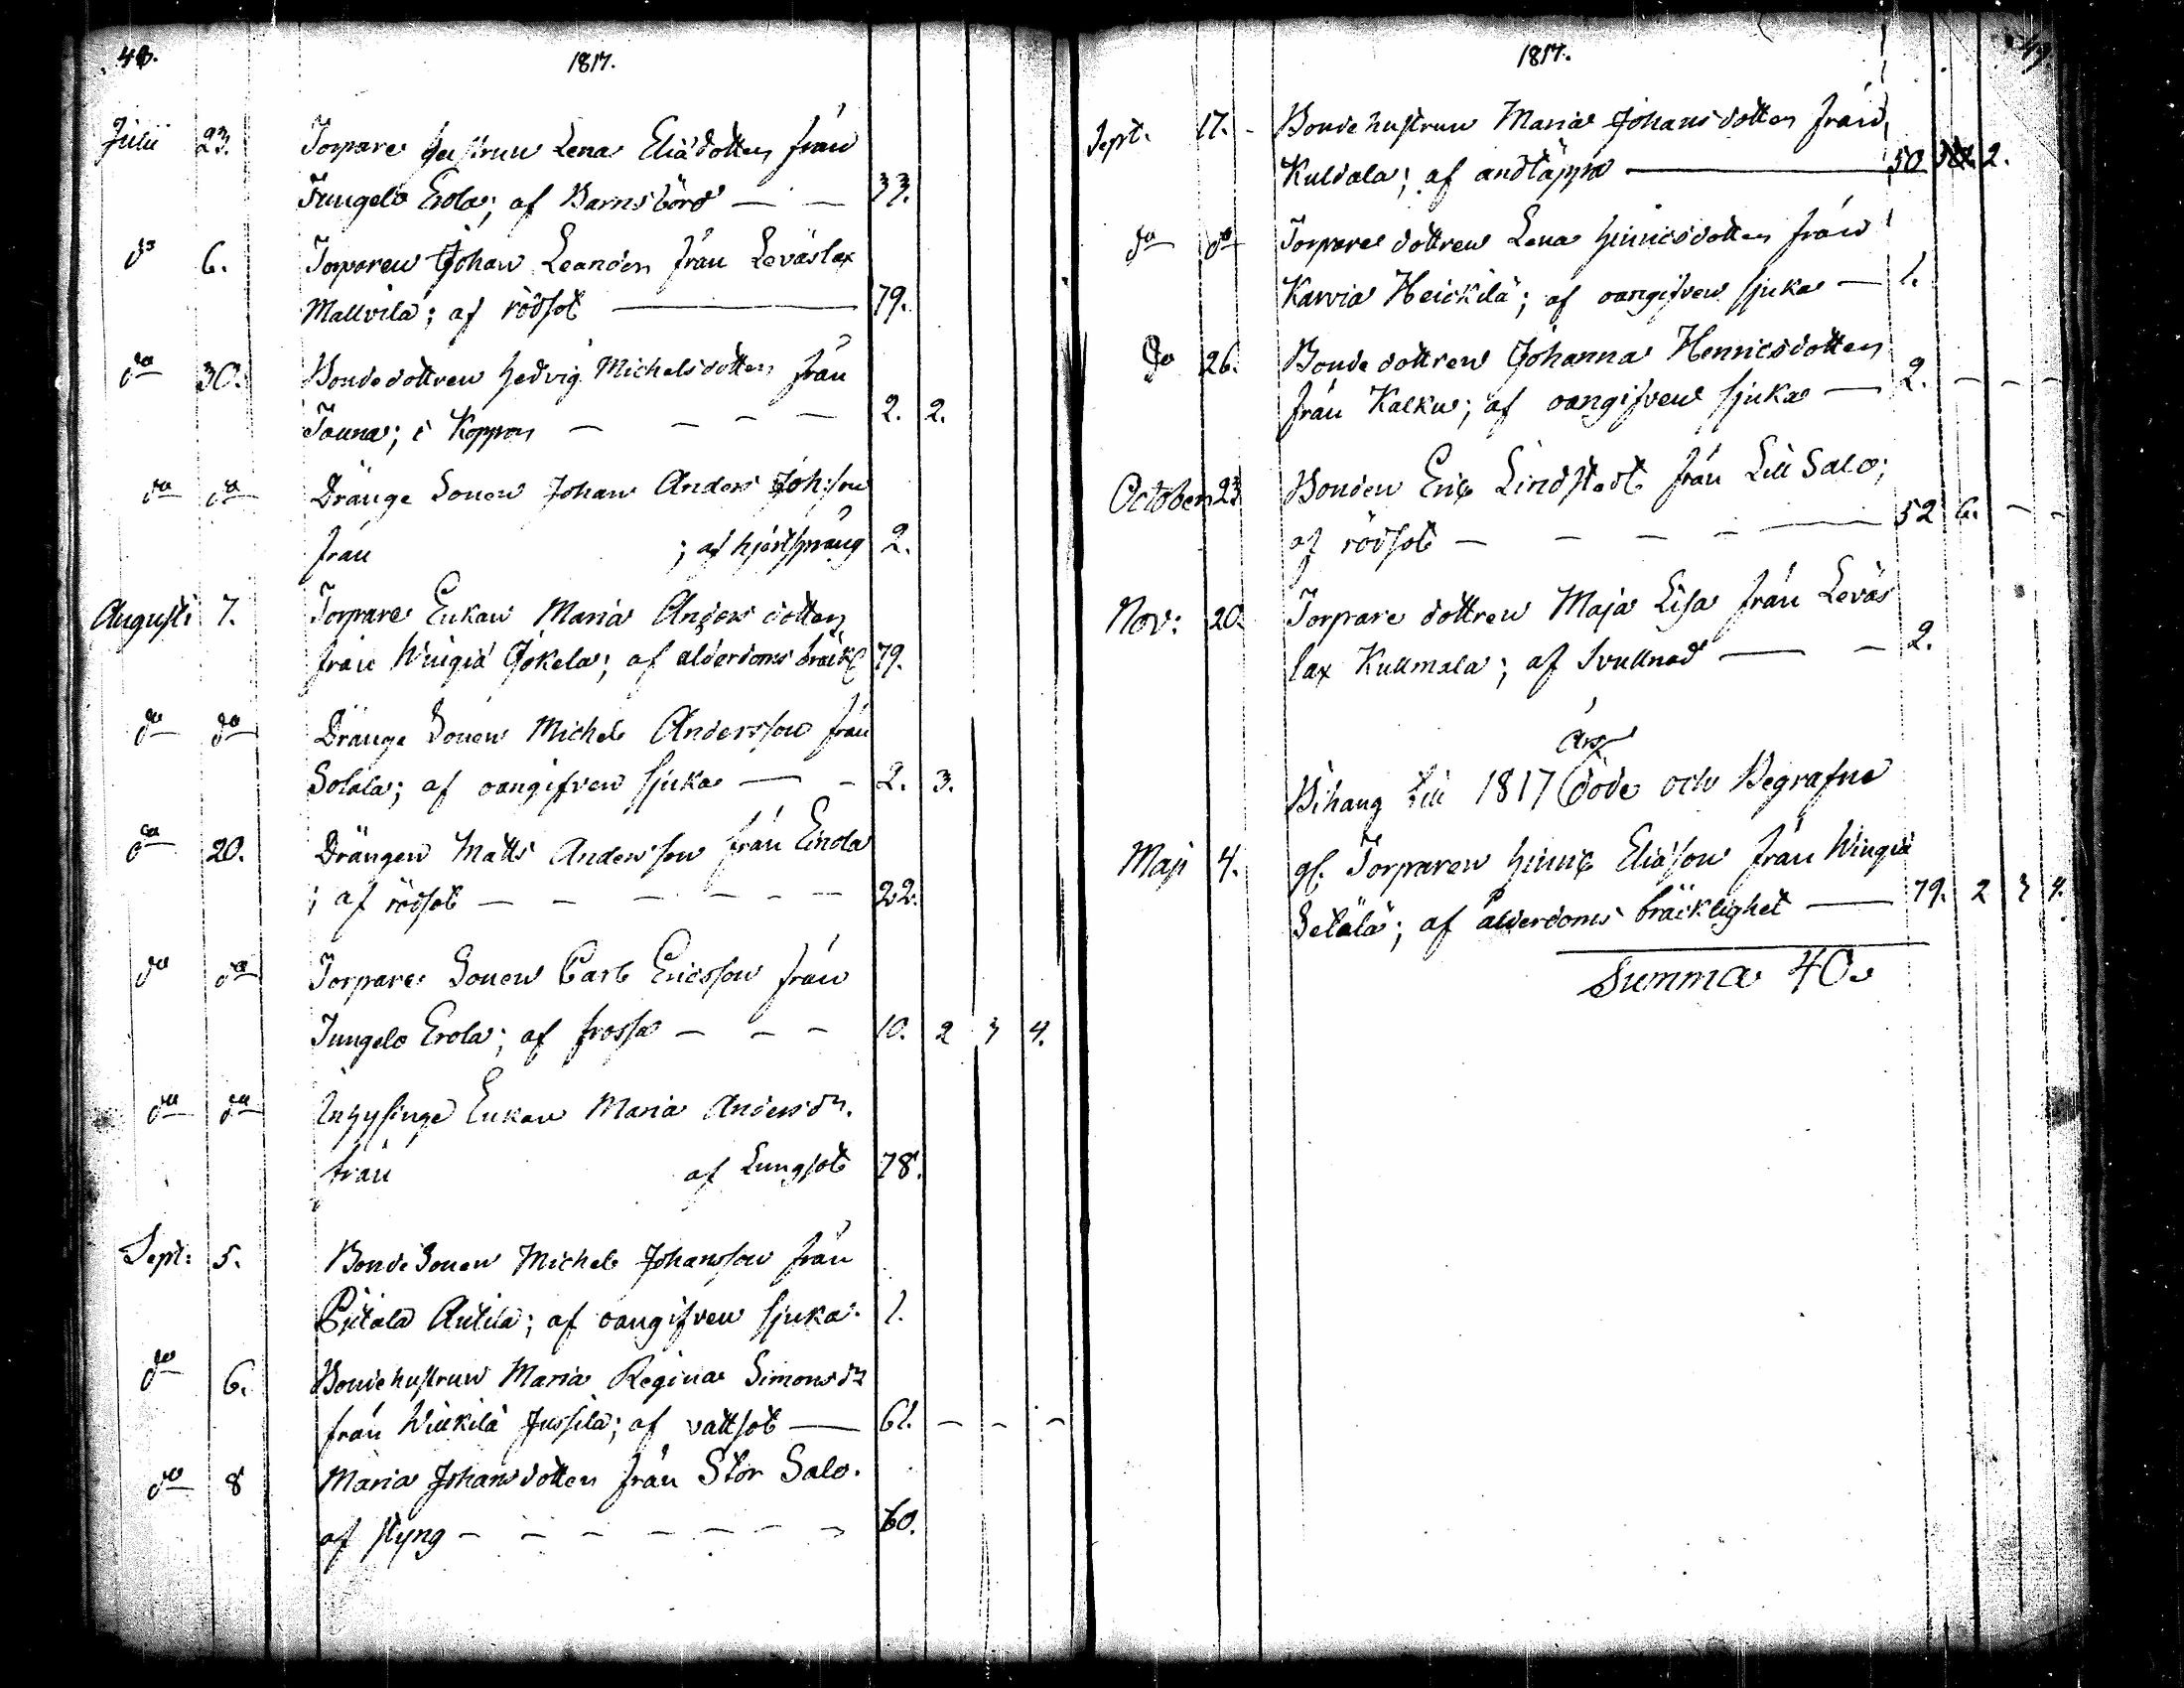 48.
1817.
Julii 23. Torpare hustrun Lena Eliædotter från
Jungelo Erola; af Barnsbörd — — 33.
do 6. Torparen Johan Leander från Leväslax
Mallvila; af rödsot — 79.
do 30. Bondedottren Hedvig Michelsdotter från
Tauna; i Koppor — — — — 2. 2.
do do Dränge Sonen Johan Anders Joh:son
från ; af hjertsprång 2.
Augusti 7. Torpare Enkan Maria Anders dotter
från Wingiä Jokela; af alderdoms bräckl 79.
do do Dränge Sonen Michel Andersson från
Solala; af oangifven sjuka — — 2. 3.
do 20. Drängen Matts Andersson från Einola
; af rödsot — — — — — — 22.
do do Torpare Sonen Carl Ericsson från
Jungelo Erola; af frossa — — — 10. 2 3 4.
do do Inhysinge Enkan Maria Andersdr.
från af Lungsot 78.
Sept: 5. BondeSonen Michel Johansson från
Pjetala Anttila; af oangifven sjuka. 1.
do 6. Bondehustrun Maria Regina Simonsdr
från Willkilä Jussila; af vattsot — 61. — — —
do 8 Maria Johansdotter från Stor Salo.
af styng — — — — — — — 60.
49.
1817.
Sept. 17. - Bondehustrun Maria Johansdotter från
Kuldala; af andtäppa — 50 2.
do do Torpare dottren Lena Hinricsdotter från
Karvia Heickilä; af oangifven sjuka — 1.
do 26. Bondedottren Johanna Henricsdotter
från Kalku; af oangifven sjuka — 2. — — —
October 23 Bonden Eric Lindstedt från Lill Salo;
af rödsot — — — — — 52 6. — —
Nov: 20. Torpare dottren Maja Lisa från Leväs
lax Kullmala; af Svullnad — — 2.
års
Bihang till 1817 döde och Begrafne
Maji 4. gl. Torparen Hinric Eliæson från Wingiä
Setälä; af ålderdoms bräcklighet — 79. 2 3 4.
Summa 40.